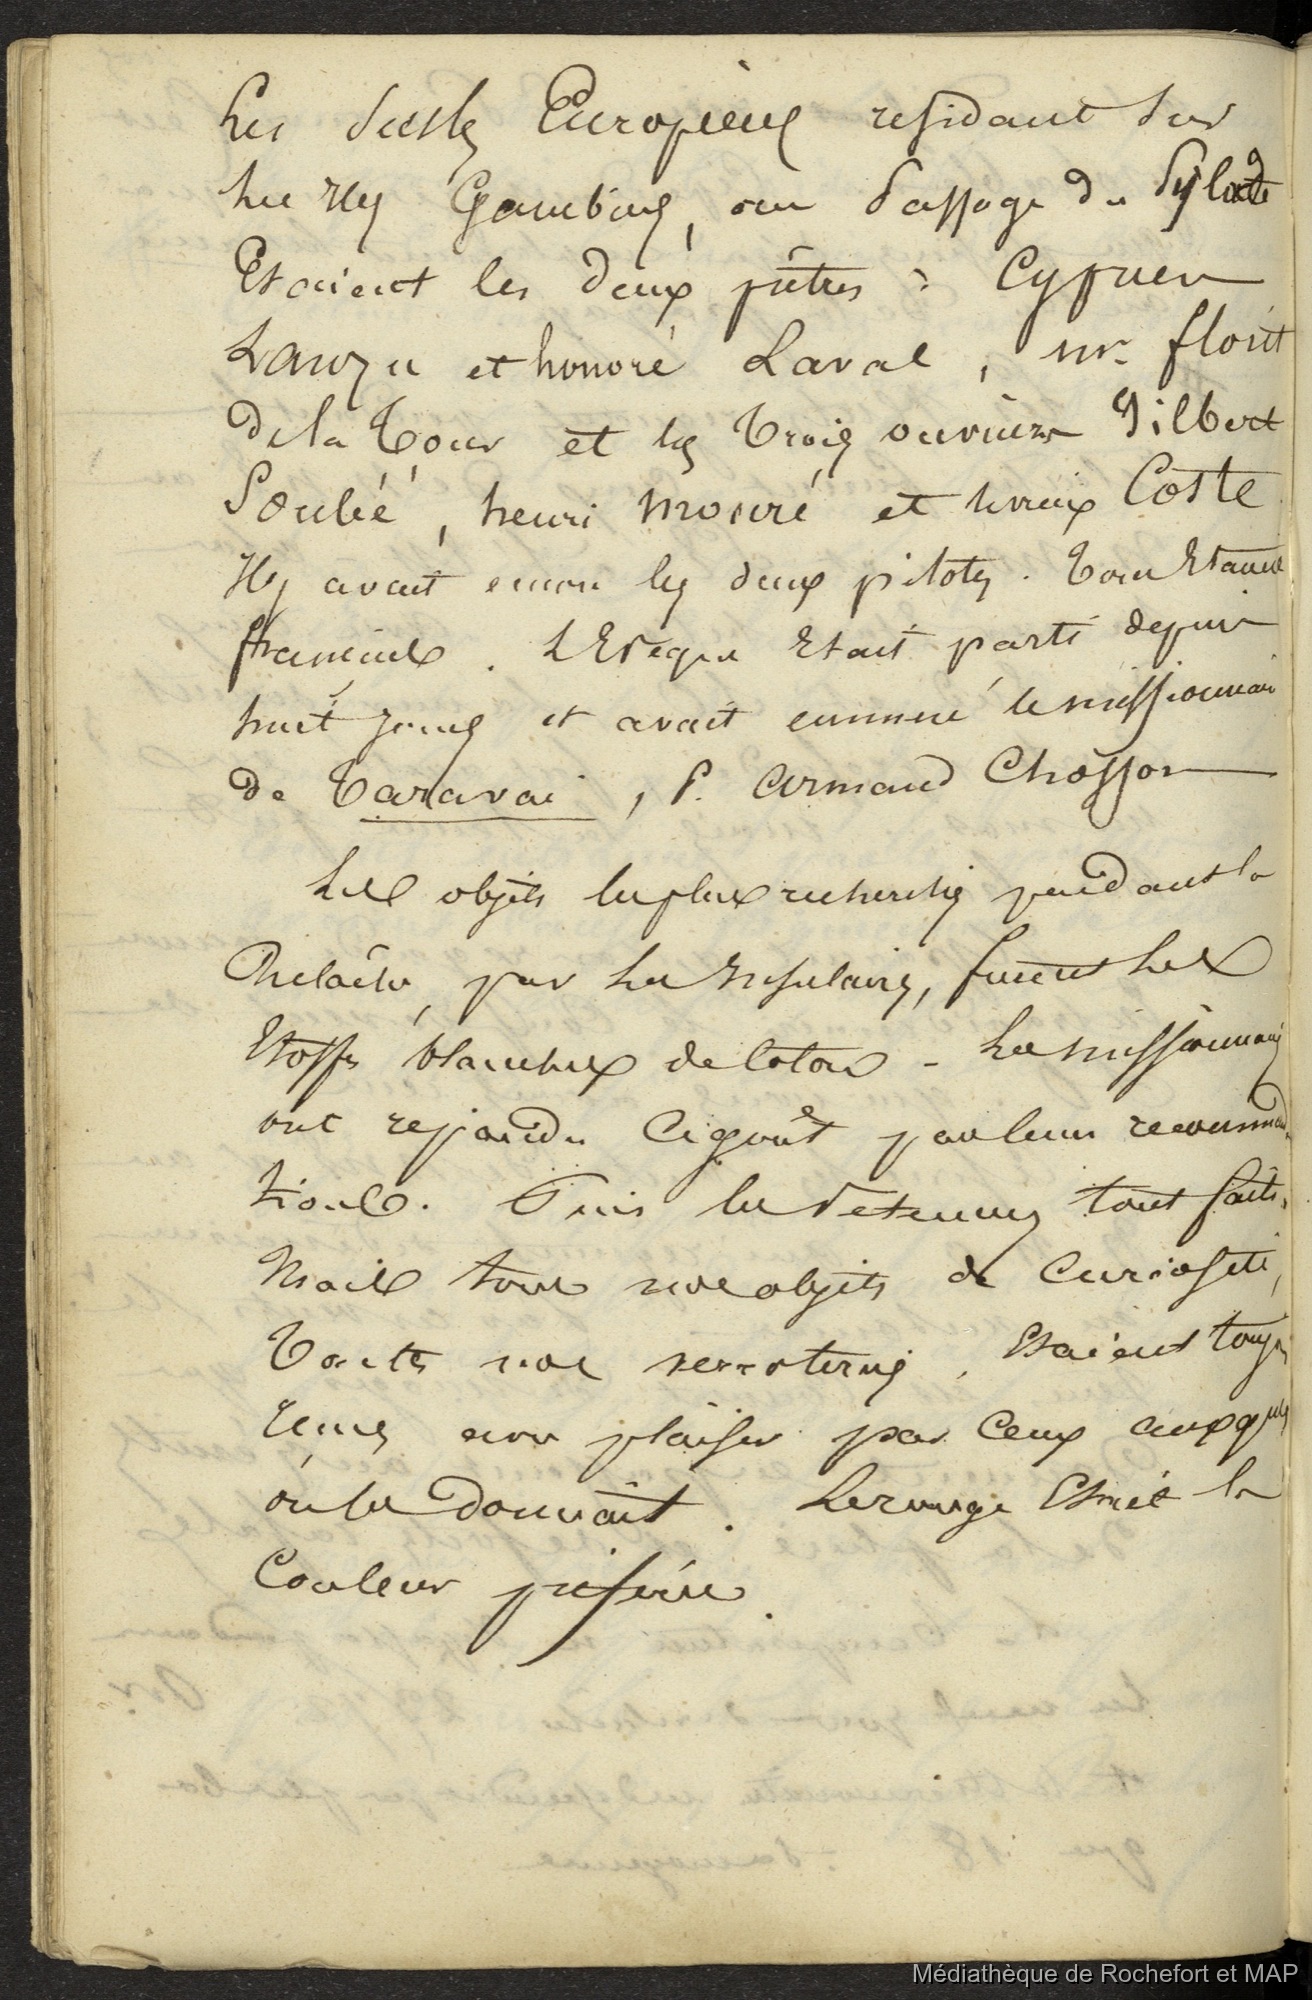 Les seuls Européens résidant sur
les Iles Gambier, au passage du Pylade
Etaient les deux prêtres : Cyprien
Liausu et honoré Laval, mr. florit
de la Tour et les Trois ouvriers Gilbert
Soulié, henri mouré et Coste
Il y avait encore les deux pilotes. Tous Etaient
français. L'Evêque Etait parti depuis
huit jours et avait emmené le missionnaire
de Taravai, P. Armand Chosson
Les objets les plus recherchés pendant la
Relâche, par les Insulaires, furent les
Etoffes blanches de coton - Les missionnaires
ont répandu ce goût par leurs recommanda
tions. Puis les vetemens tout faits.
Mais tous nos objets de curiosité,
Toutes nos verroteries, Etaient toujours
reçus avec plaisir par ceux auxquels
on les donnait. Le rouge Etait la
Couleur préférée.
Médiathèque de Rochefort et MAP